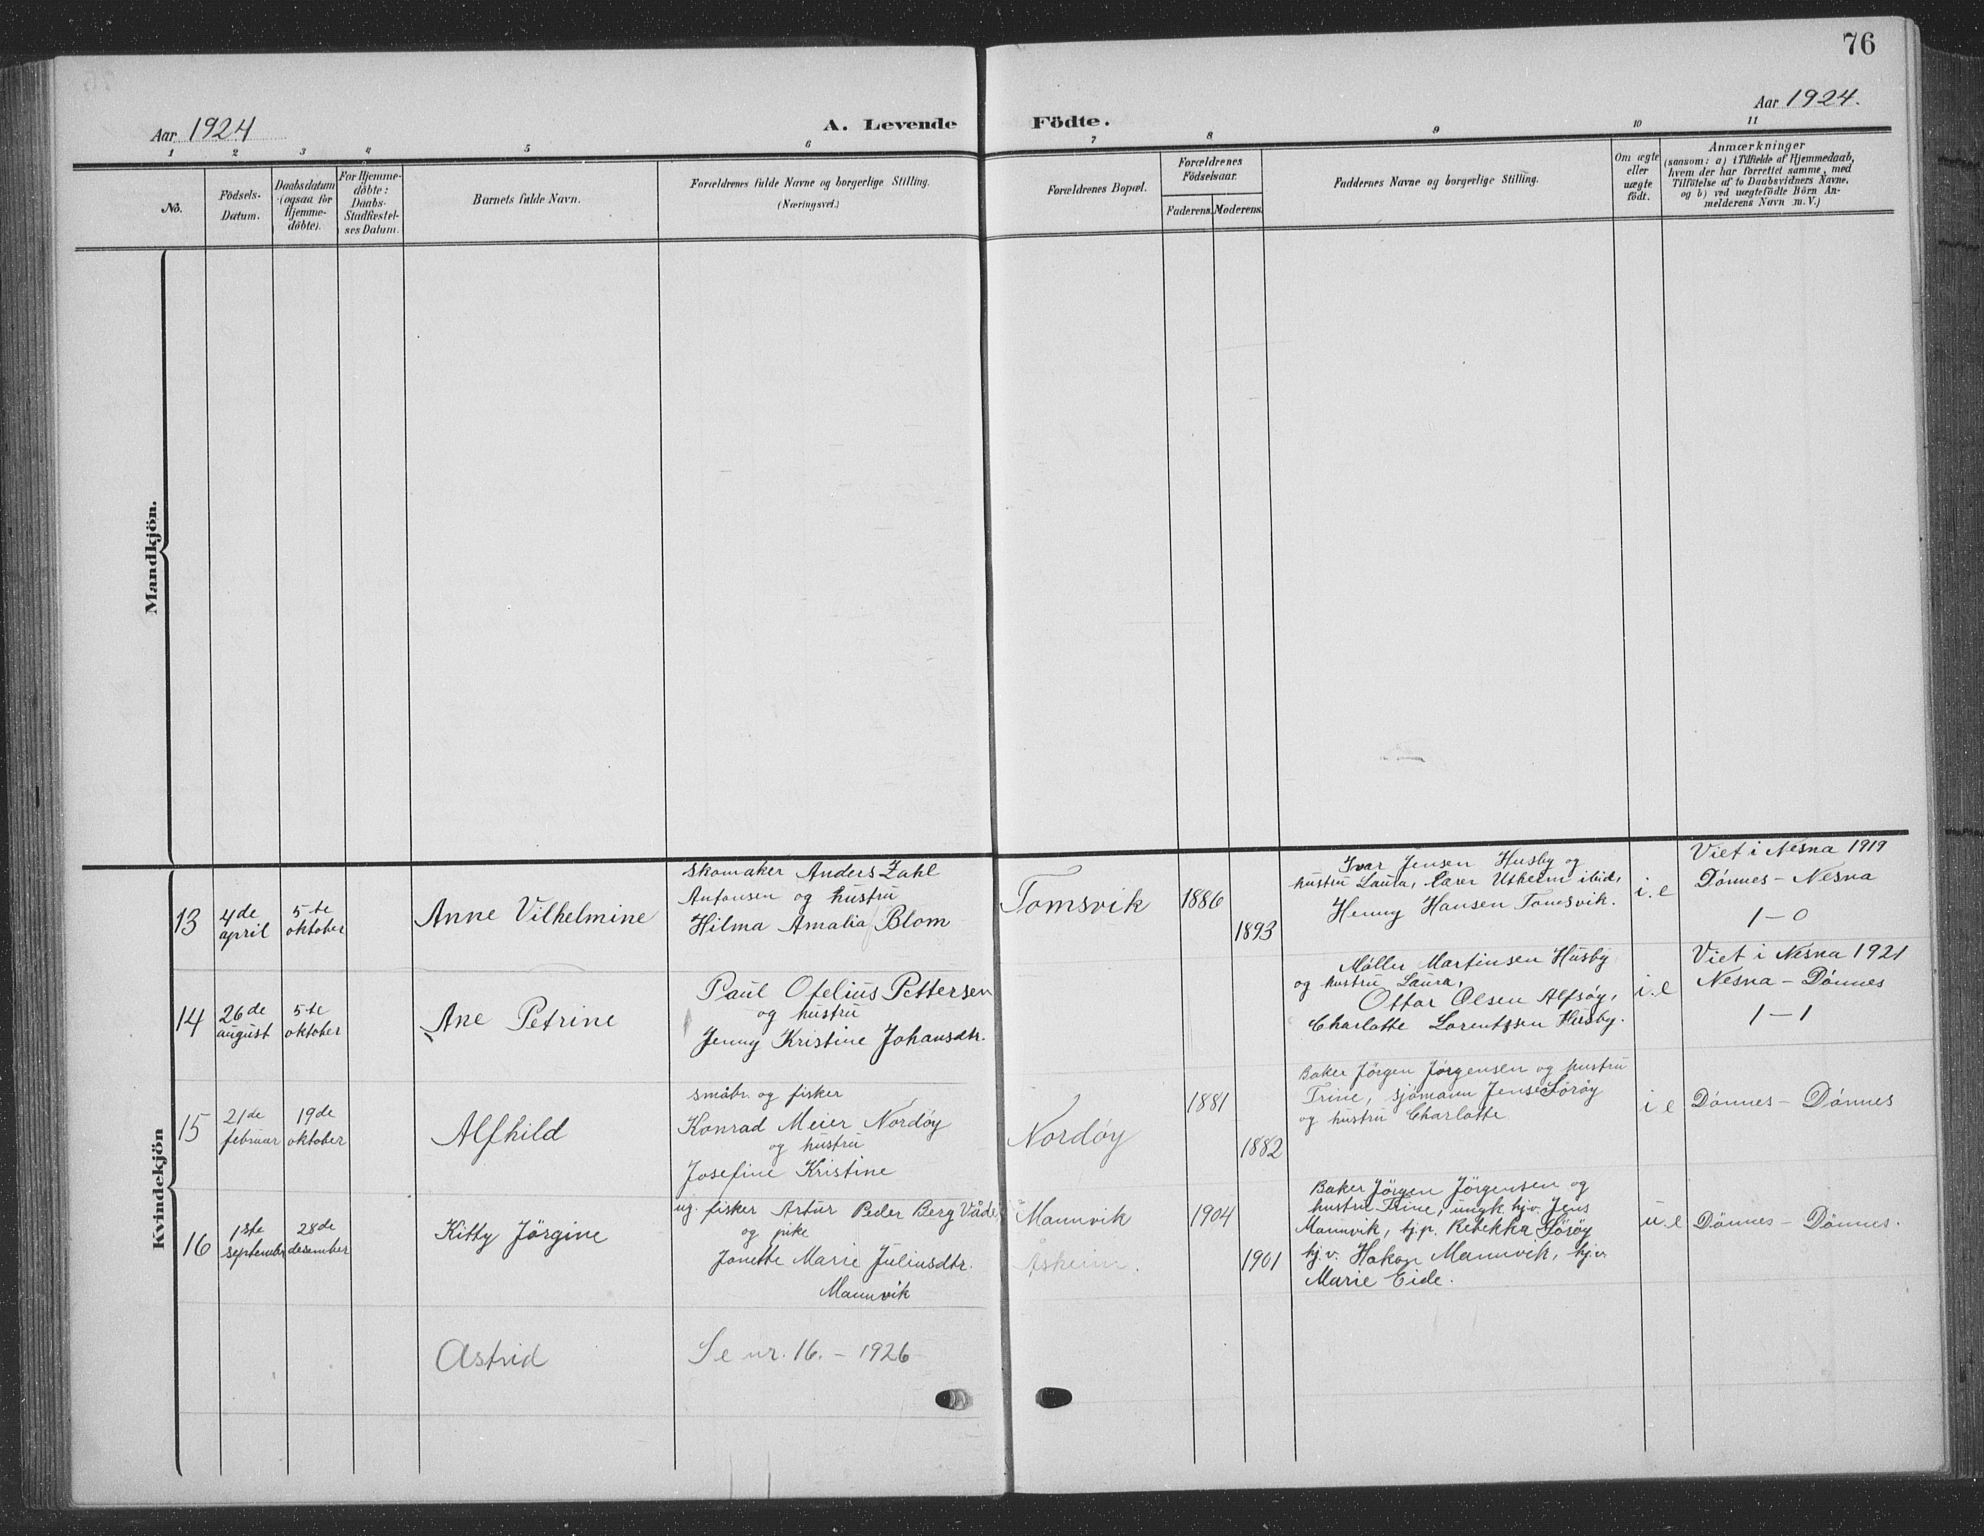 76
Aar 1924
A. Levende
Födte.
Aar 1924.
1 2 3 4 5 6 7 8 9 10 11
No.
Födsels-
Datum.
Daabsdatum
(ogsaa for
Hjemme-
døbte).
For Hjemme-
døbte:
Daabs-
Stadfæstel-
ses Datum.
Barnets fulde Navn.
Forældrenes fulde Navne og borgerlige Stilling.
(Næringsvei.)
Forældrenes Bopæl.
Forældrenes
Födselsaar.
Faderens.
Moderens.
Faddernes Navne og borgerlige Stilling.
Om ægte
eller
uægte
födt.
Anmærkninger
(saasom: a) i Tilfælde af Hjemmedaab,
hvem der har forrettet samme, med
Tilföielse af to Daabsvidners Navne,
og b) ved uægtefödte Börn An-
melderens Navn m. V.)
Mandkjön.
Kvindekjön
13
4de
april
5-te
oktober
Anne Vilhelmine
skomaker Anders Zahl
Antonsen og hustru
Hilma Amalia Blom
Tomsvik
1886
1893
Ivar Jensen Husby og
hustru Laura, lærer Utheim ibid,
Henny Hansen Tomsvik.
i.e
Viet i Nesna 1919
Dønnes - Nesna
1-0
14
26de
august
5-te
oktober
Ane Petrine
Paul Ofelius Pettersen
og hustru
Jenny Kristine Johansdtr.
Møller Martinsen Husby
og hustru Laura,
Ottar Olsen Alfsøy,
Charlotte Lorentzsen Husby.
i.e
Viet i Nesna 1921
Nesna - Dønnes
1-1
15
21de
februar
19de
oktober
Alfhild
småbr. og fisker
Konrad Meier Nordøy
og hustru
Josefine Kristine
Nordøy
1881
1882
Baker Jörgen Jörgensen og hustru
Trine, sjömann Jens Sørøy
og hustru Charlotte
i e
Dønnes - Dønnes
16
1ste
september
28de
desember
Kitty Jörgine
ug. fisker Artur Peder Berg Våde,
og pike
Jonette Marie Juliusdtr.
Mannvik
Mannvik
Åsheim.
1904
1901
Baker Jörgen Jörgensen og
hustru Trine, ungk. hj.v. Jens
Mannvik, hj.p. Rebekka Sørøy
hj.v. Hakon Mannvik, hj.v.
Marie Eide.
u.e
Dønnes - Dønnes.
Astrid
Se nr. 16. - 1926